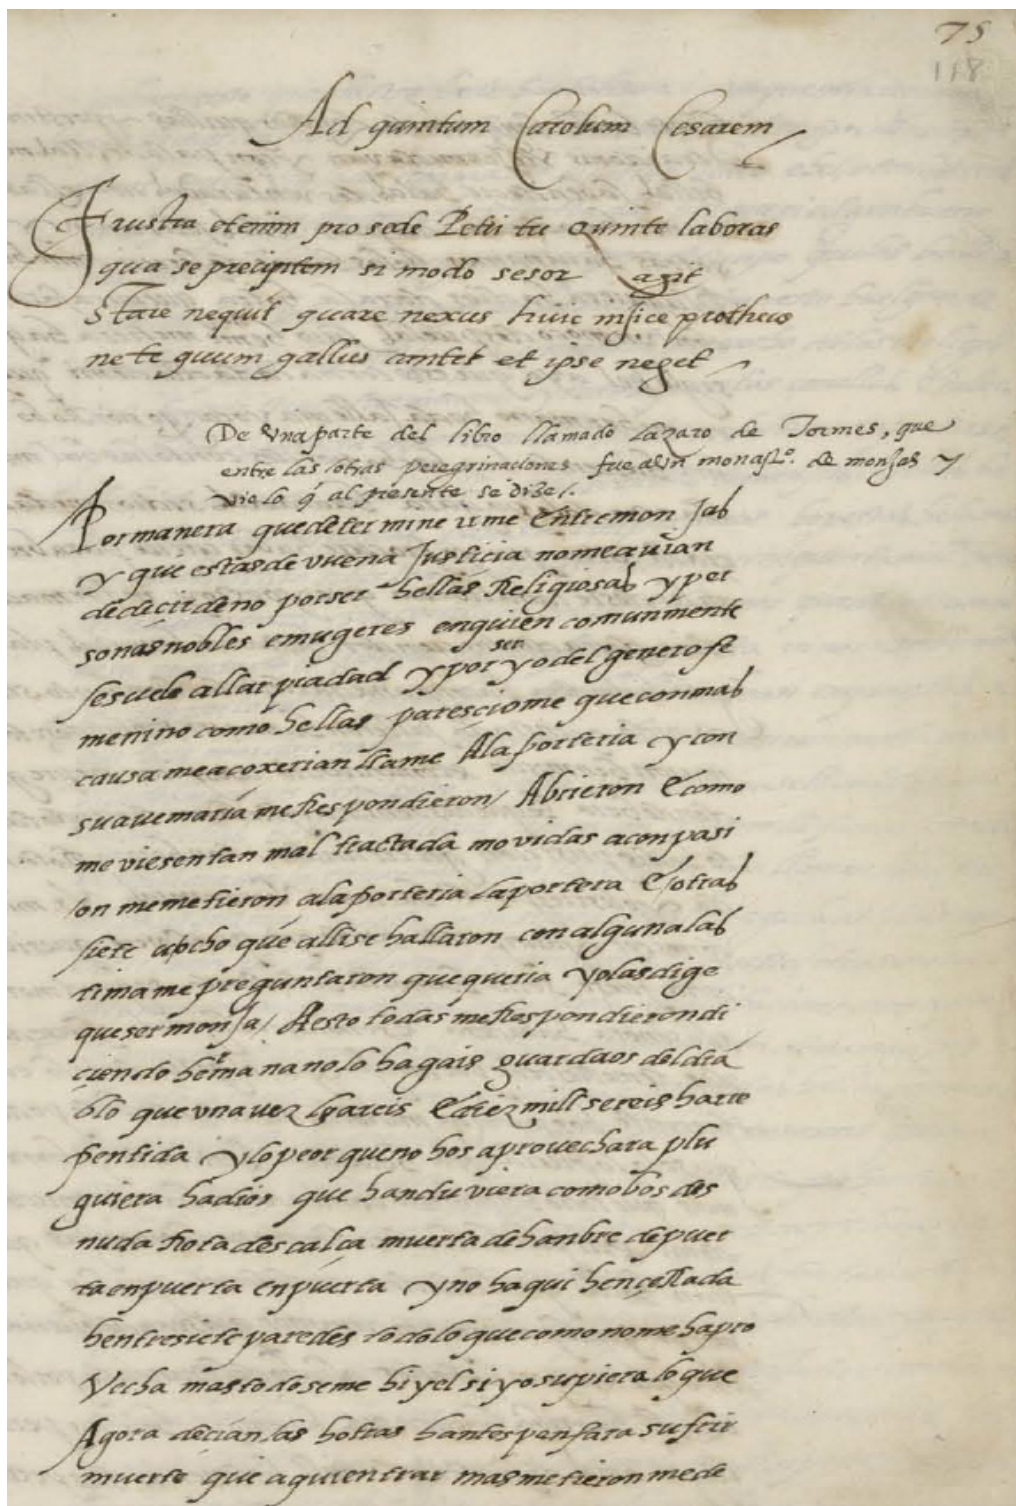 75
118
Ad quintum Carolum Cesarem
Frustra etenim pro sede Petri tu Quinte laboras
qua se precipitem si modo sesor agit
Stare nequit quare nexus huic injice protheus
ne te quum gallus amtet et ipse neget
De vna parte del libro llamado Lazaro de Tormes, que
entre las otras peregrinaciones fue a vn monastº. de monjas y
vio lo q̃ al presente se dize /.
Por manera que determine irme Entre monjas
y que estas de vuena Justicia no me auian
de decir de no por ser hellas Religiosas y per
sonas nobles e mugeres en quien comunmente
se suele allar piadad y por ser yo del genero fe
menino como hellas paresciome que con mas
causa me acoxerian llame A la porteria y con
su auemaria me Respondieron / Abrieron E como
me viesen tan mal tractada movidas a conpasi
/on me metieron a la porteria la portera E otras
siete u ocho que alli se hallaron con alguna las
tima me preguntaron que queria yo las dige
que ser monja / A esto todas me Respondieron di
çiendo hermana no lo hagais guardaos del dia
blo que vna vez lo areis E diez mill sereis harre
pentida y lo peor que no hos aprovechara plu
guiera ha dios que handuviera como bos des
nuda Rota descalça muerta de hanbre de puer
ta en puerta en puerta y no haqui hençerrada
hentre siete paredes todo lo que como no me hapro
Vecha mas todo se me hiyel si yo supiera lo que
Agora decian las hotras hantes pensara sufrir
muerte que aqui entrar mas metieron me de